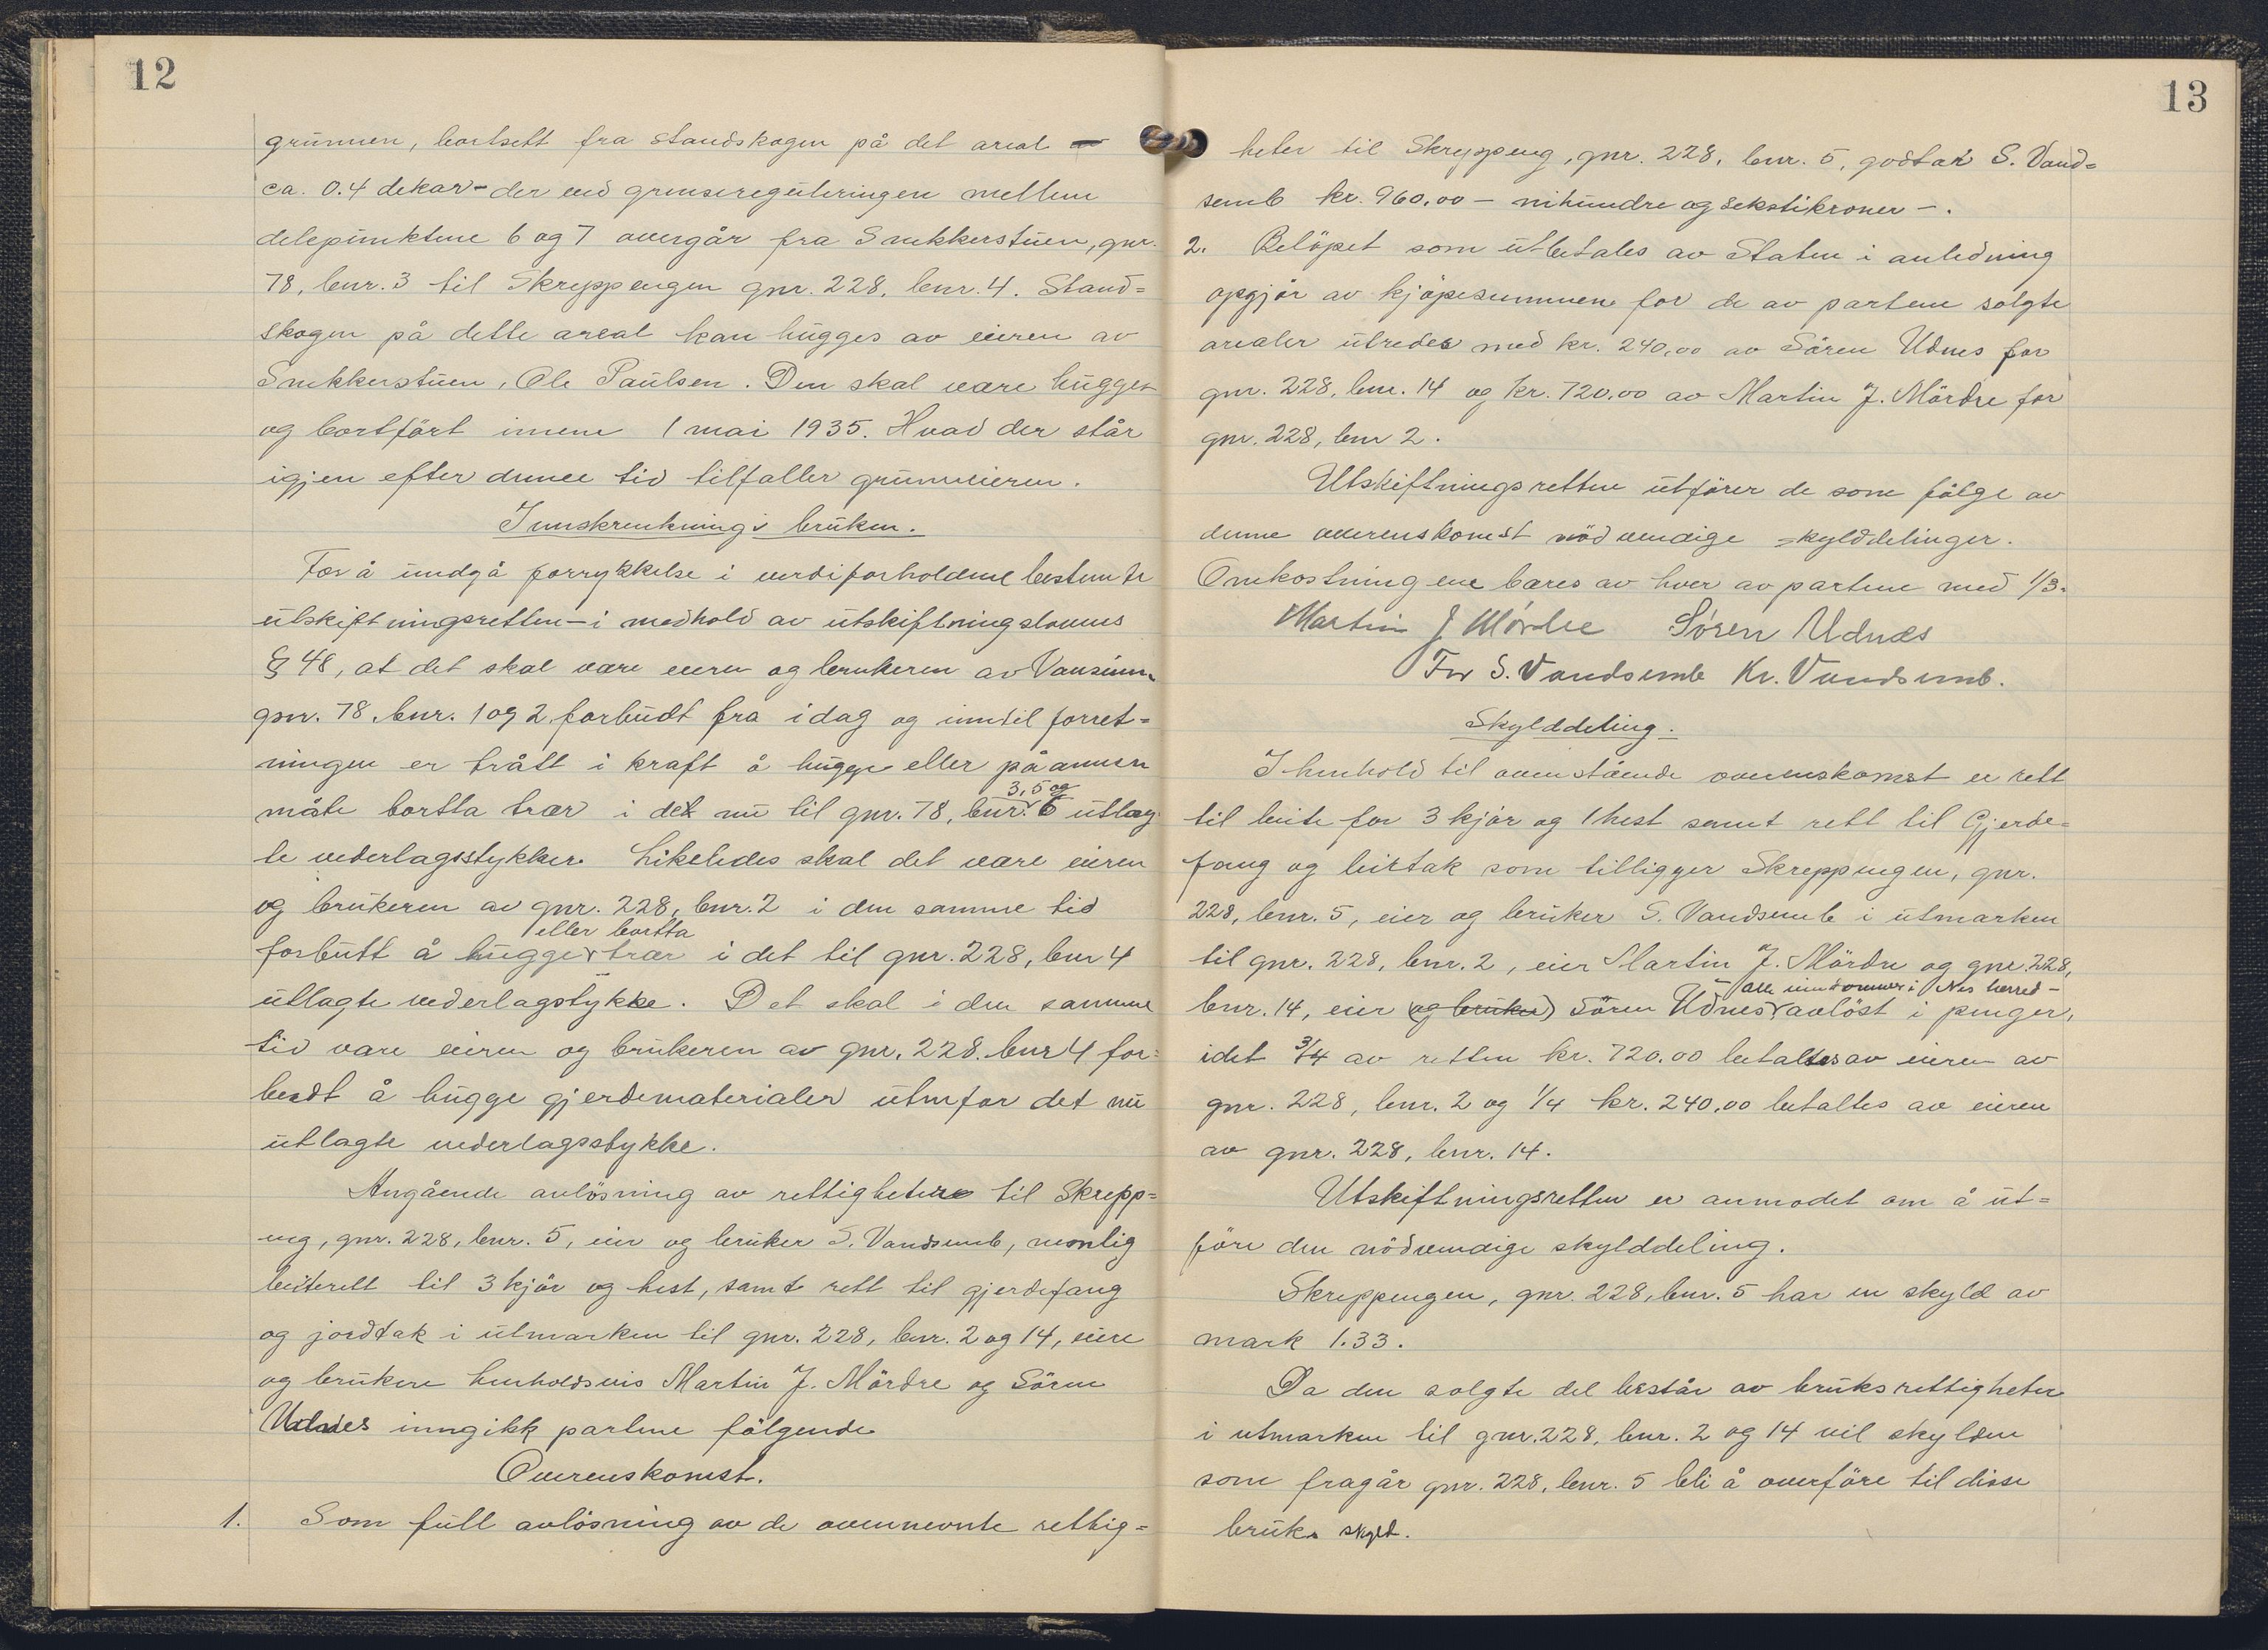 12
grunnen, bortsett fra standskogen på det areal -
ca. 0.4 dekar - der ved grensereguleringen mellem
delepunktene 6 og 7 overgår fra Snekkerstuen, gnr.
78, bnr. 3 til Skreppengen gnr. 228, bnr. 4. Stand=
skogen på dette areal kan hugges av eieren av
Snekkerstuen, Ole Paulsen. Den skal være hugget
og bortfört innen 1 mai 1935. Hvad der står
igjen efter denne tid tilfaller grunneieren.
Innskrenkning i bruken.
For å undgå forrykkelse i verdiforholdene bestemte
utskiftningsretten - i medhold av utskiftningslovens
§ 48, at det skal være eieren og brukeren av Vansemn
gnr. 78, bnr. 1 og 2 forbudt fra idag og inntil forret=
ningen er trått i kraft å hugge eller på annen
måte bortta trær i det nu til gnr. 78, bnr. 3, 5 og 6 utlag
te vederlagsstykker. Likeledes skal det være eieren
og brukeren av gnr. 228, bnr. 2 i den samme tid
forbutt å hugge eller bortta trær i det til gnr. 228, bnr 4
utlagte vederlagstykke. Det skal i den samme
tid være eieren og brukeren av gnr. 228. bnr 4 for=
budt å hugge gjerdematerialer utenfor det nu
utlagte vederlagsstykke.
Angående avlösning av rettighetene til Skrepp=
eng, gnr. 228, bnr. 5, eier og bruker S. Vandsemb, nemlig
beiterett til 3 kjör og hest, samt rett til gjerdefang
og jordtak i utmarken til gnr. 228, bnr. 2 og 14, eiere
og brukere henholdsvis Martin J. Mördre og Sören
Udnes inngikk partene fölgende
Overenskomst.
1. Som full avlösning av de ovennevnte rettig=
13
heter til Skreppeng, gnr. 228, bnr. 5, godtar S. Vand=
semb kr. 960,00 - nihundre og sekstikroner -.
2. Belöpet som utbetales av Staten i anledning
opgjör av kjöpesummen for de av partene solgte
arealer utredes med kr. 240,00 av Sören Udnes for
gnr. 228, bnr. 14 og kr. 720,00 av Martin J. Mördre for
gnr. 228, bnr 2.
Utskiftningsretten utförer de som fölge av
denne overenskomst nödvendige skylddelinger.
Omkostningene bæres av hver av partene med 1/3.
Martin J Mördre Søren Udnes
For S. Vandsemb Kr. Vandsemb.
Skylddeling.
I henhold til ovenstående overenskomst er rett
til beite for 3 kjör og 1 hest samt rett til Gjerde=
fang og leirtak som tilligger Skreppengen, gnr.
228, bnr. 5, eier og bruker S. Vandsemb i utmarken
til gnr. 228, bnr. 2, eier Martin J. Mördre og gnr. 228,
bnr. 14, eier (og bruker) Sören Udnes - alle eiendommer i Nes herred - avlöst i penger,
idet 3/4 av retten kr. 720.00 betaltes av eieren av
gnr. 228, bnr. 2 og 1/4 kr. 240,00 betaltes av eieren
av gnr. 228, bnr. 14.
Utskiftningsretten er anmodet om å ut=
före den nödvendige skylddeling.
Skreppengen, gnr. 228, bnr. 5 har en skyld av
mark 1.33.
Da den solgte del består av bruksrettigheter
i utmarken til gnr. 228, bnr. 2 og 14 vil skylden
som fragår gnr. 228, bnr. 5 bli å overföre til disse
bruks skyld.